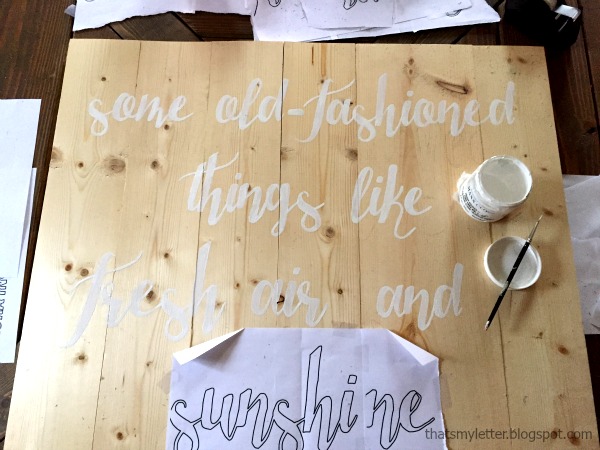 some old-fashioned
things like
fresh air and
sunshine
thatsmyletter.blogspot.com